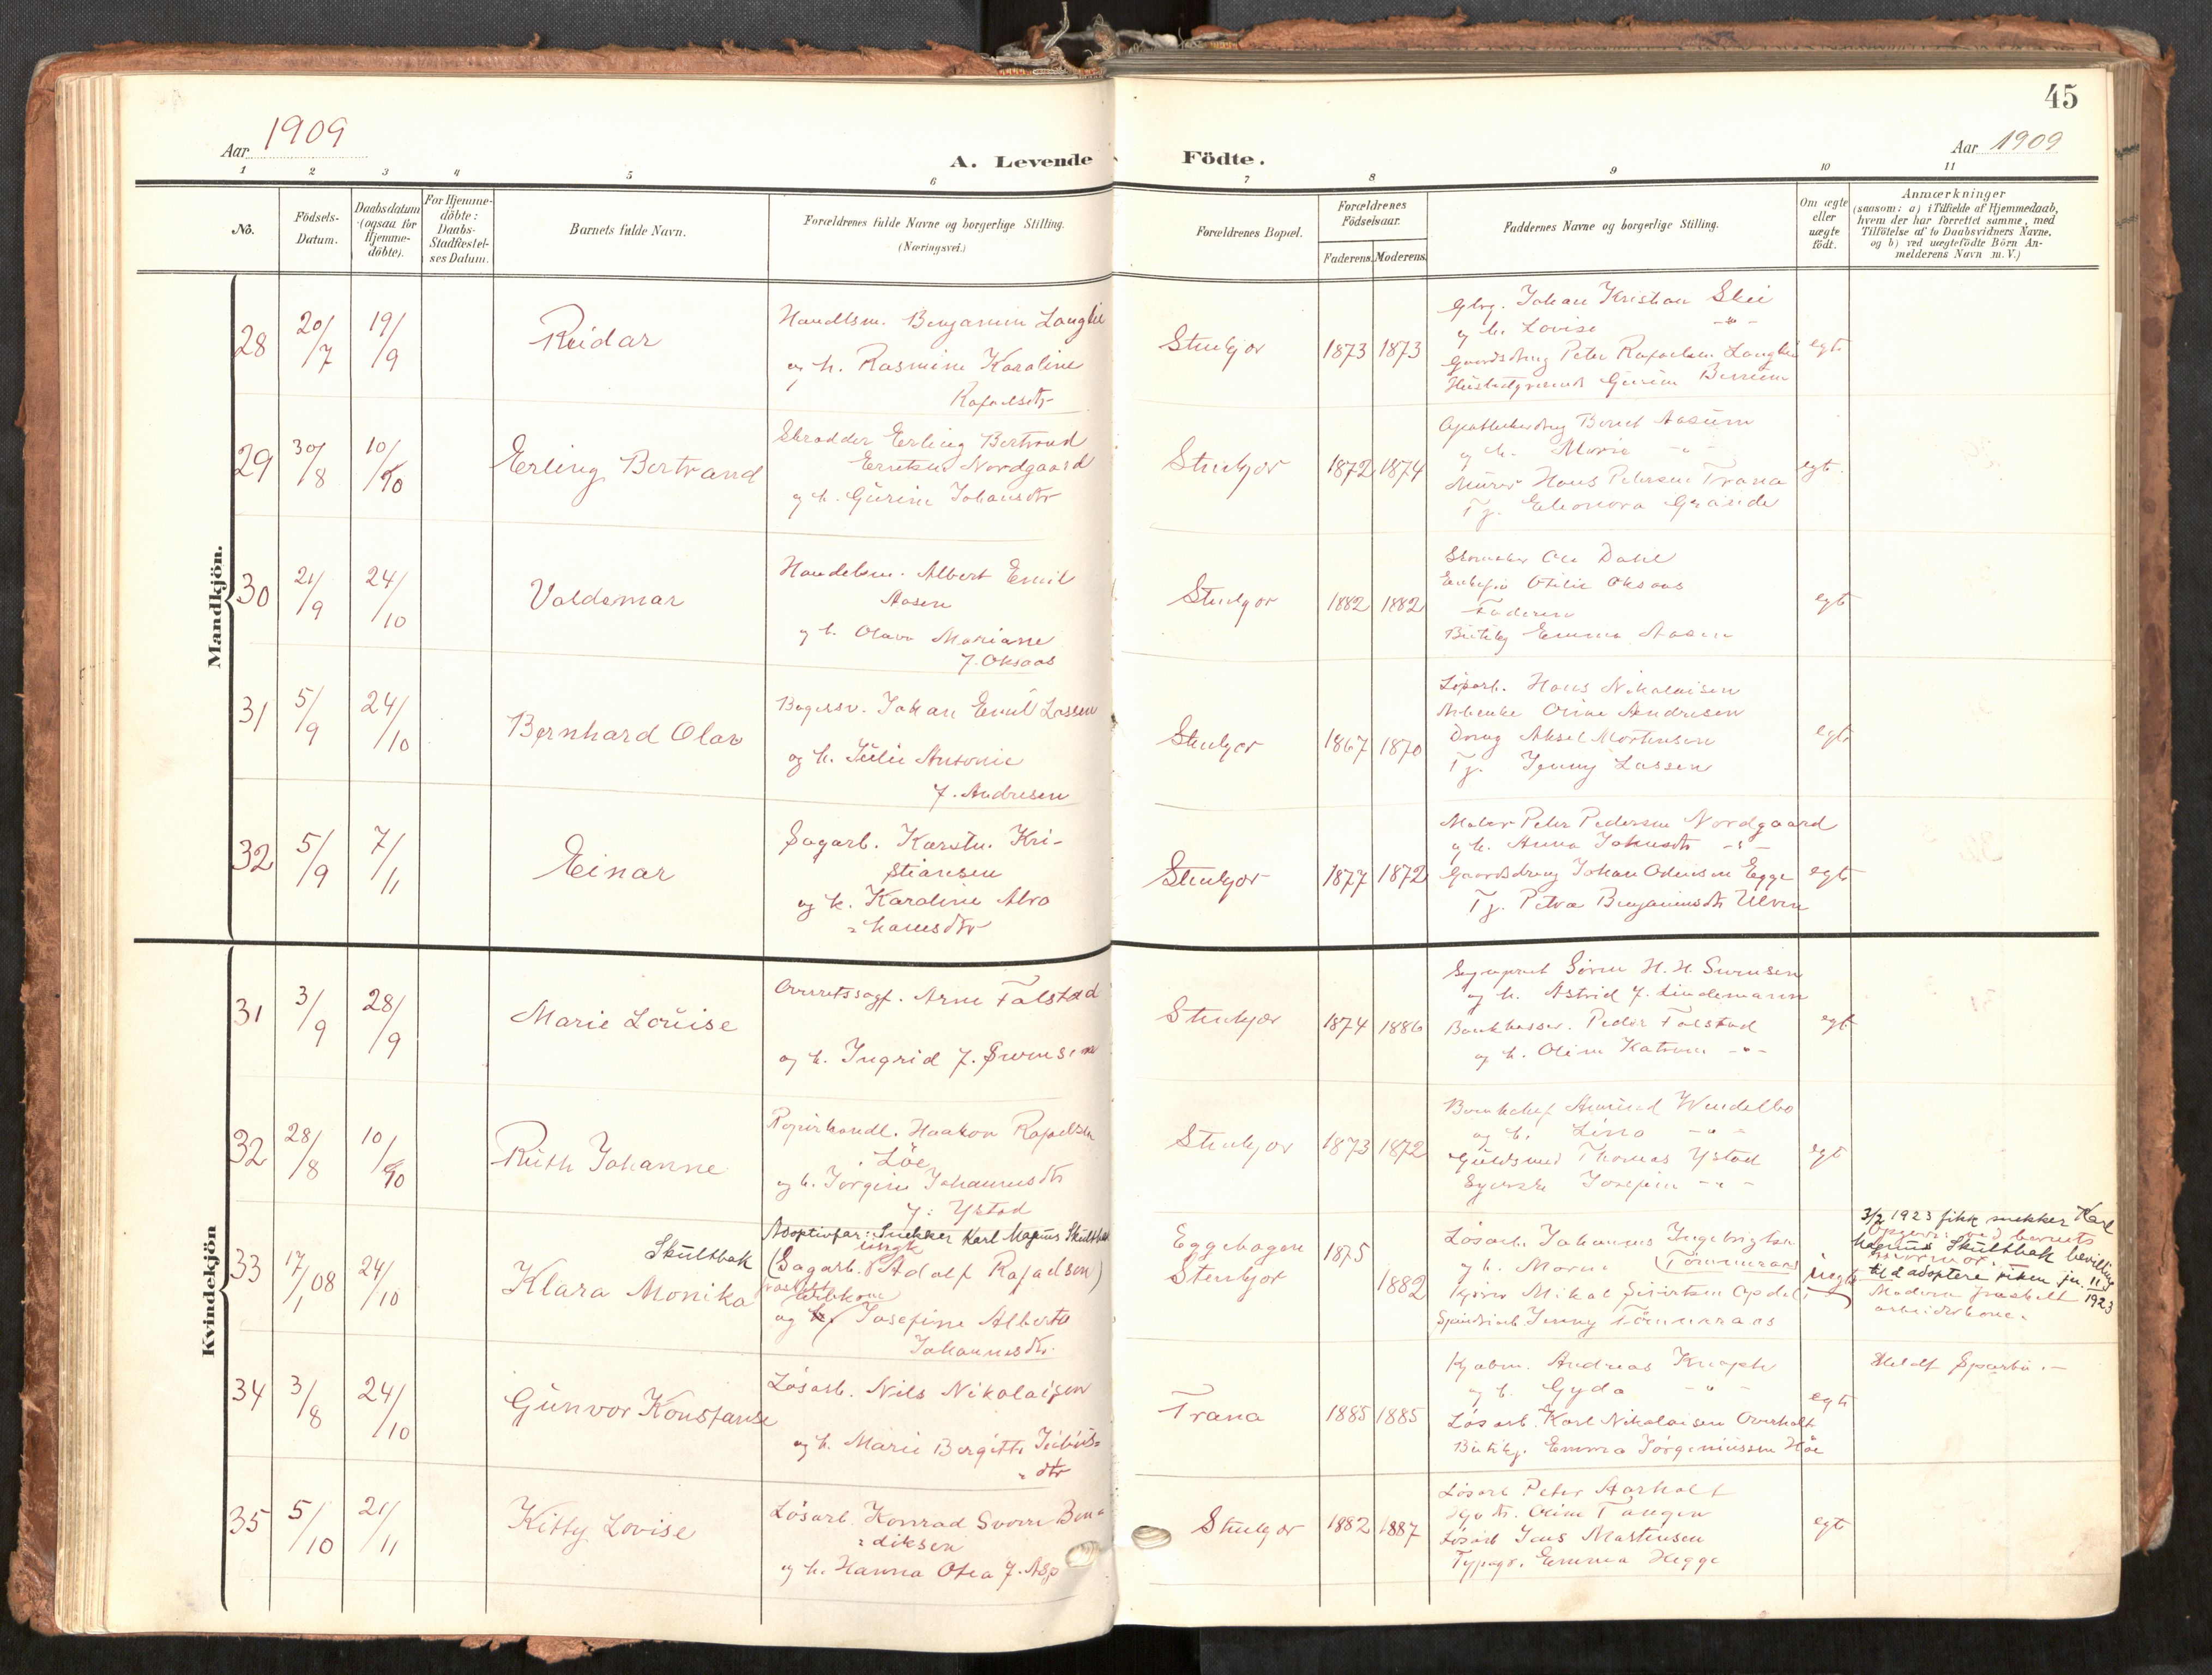 45
Aar 1909
A. Levende Födte.
Aar 1909
1 2 3 4 5 6 7 8 9 10 11
No.
Födsels-
Datum.
Daabsdatum
(ogsaa for
Hjemme-
döbte).
For Hjemme-
döbte:
Daabs-
Stadfæstel-
ses Datum.
Barnets fulde Navn.
Forældrenes fulde Navne og borgerlige Stilling.
(Næringsvei.)
Forældrenes Bopæl.
Forældrenes
Födselsaar.
Faderens. Moderens.
Faddernes Navne og borgerlige Stilling.
Om ægte
eller
uægte
født.
Anmærkninger
(saasom: a) i Tilfælde af Hjemmedaab,
hvem der har forrettet samme, med
Tilföielse af to Daabsvidners Navne,
og b) ved uægtefödte Börn An-
melderens Navn m. V.)
Mandkjön.
28 20/7 19/9 Reidar
Handlsm. Benjamin Langli
og h. Rasmine Karoline
Rafaelsdtr
Stenkjær 1873 1873
Johan Kristian Skei
og h. Lovise -"-
Gaardsdreng Peter Rafaelsen Langli
egte
29 30/8 10/10 Erling Bertrand
Skrædder Erling Bertrand
Nordgaard
og h. Gurine Johansdtr
Stenkjær 1872 1874
Aasum
og h. Marie -"-
Murer Hans Petersen Trana
Tj. Eleonora
egte
30 21/9 24/10 Valdemar
Handelsm. Albert Emil
Aasen
og h. Olava Mariane
f. Oksaas
Stenkjær 1882 1882
Skomaker Ole Dahl
Otilie Oksaas
Faderen
Emma Aasen
egte
31 5/9 24/10 Bernhard Olav
Bagersv. Johan Emil Lassen
og h. Julie Antonie
f. Andresen
Stenkjær 1867 1870
Løsarb. Hans Nikolaisen
Oline Andresen
Dreng Aksel Mortensen
Tj. Jenny Lassen
egte
32 5/9 7/11 Einar
Sagarb. Karsten Kri-
stiansen
og h. Karoline Abra
=hamsdtr
Stenkjær 1877 1872
Maler Peter Pedersen Nordgaard
og h. Anna Johnsdtr -"-
Gaardsdreng Johan Odinsen Egge
Tj. Petra Benjaminsdtr Ulven
egte
Kvindekjön
31 3/9 28/9 Marie Louise
Overretssagf. Arne Falstad
og h. Ingrid f. Svensen
Stenkjær 1874 1886
Søren H. H. Svensen
og h. Astrid f. Lindemann
Bankkasser. Peder Falstad
og h. Oline Katrine -"-
egte
32 28/8 10/10 Ruth Johanne
Papirhandl. Haakon Rafaelsen
Løe
og h. Jørgine Johannesdtr
f. Ystad
Stenkjær 1873 1872
Wendelbo
og h. Lina -"-
Guldsmed Thomas Ystad
Syerske Josefine -"-
egte
33 17/1 08 24/10 Skultbak
Klara Monika
Adoptivfar: Snekker Karl Magnus Skultbak
ungk
(Sagarb. Adolf Rafaelsen)
fraskilt
arb.kone
og Josefine Alberte
Johannesdtr.
Eggehagen
Stenkjær 1875 1882
Løsarb. Johannes Ingebrigtsen
og h. Maren (Tømmeraas
Mikal Sivertsen Opdal
Jenny Tømmeraas
uegte
3/2 1923 fikk snekker Karl
Opgave ved barnets
Magnus Skultbak bevilling
mormor.
til å adoptere piken jn. 11/1923
Moderen fraskilt
arbeiderkone.
34 3/8 24/10 Gunvor Konstanse
Løsarb. Nils Nikolaisen
og h. Marie Bergitte Julius=
=dtr
Trana 1885 1885
Kjøbm. Andreas
og h. Gyda -"-
Løsarb. Karl Nikolaisen Overholt
Emma Jørginiussen
egte
Sparbu.-
35 5/10 21/11 Kitty Lovise
Løsarb. Konrad Bene
=diksen
og h. Hanna Otea f. Asp
Stenkjær 1882 1887
Løsarb Peter Aarholt
Oline Tangen
Løsarb Jens Martinsen
Typogr. Emma Hegge
egte